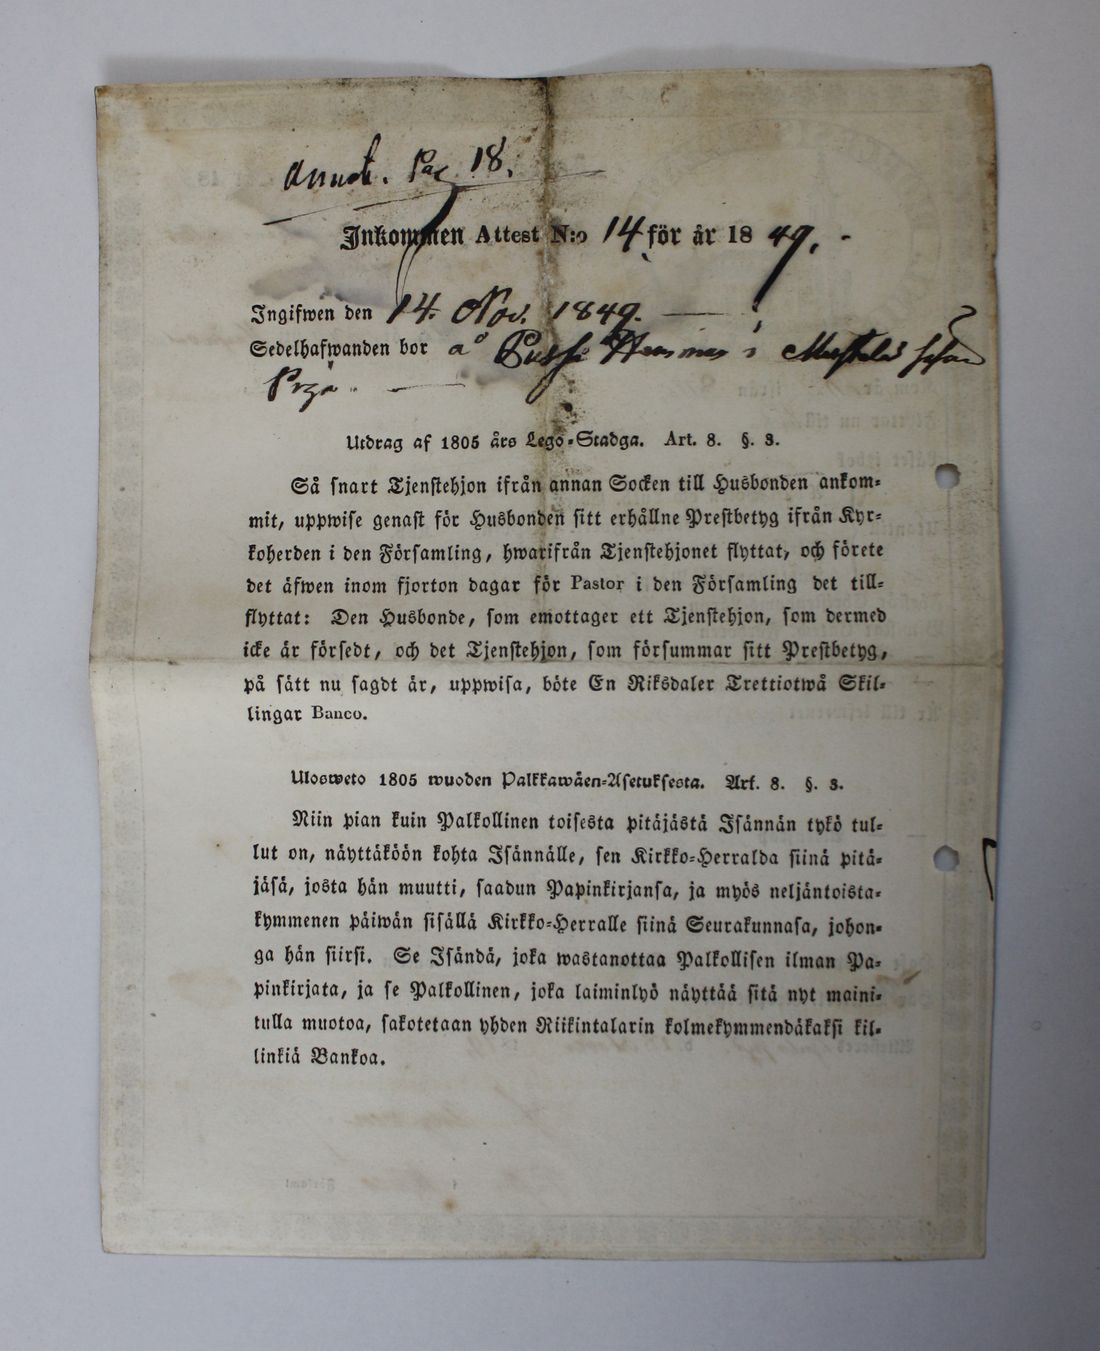 Annot. Pag 18.
Inkommen Attest N:o 14 för år 1849.
Ingifwen den 14. Nov. 1849.
Sedelhafwanden bor å
Utdrag af 1805 års Lego-Stadga. Art. 8. §. 3.
Så snart Tjenstehjon ifrån annan Socken till Husbonden ankom-
mit, uppwise genast för Husbonden sitt erhållne Prestbetyg ifrån Kyr-
koherden i den Församling, hwarifrån Tjenstehjonet flyttat, och förete
det äfwen inom fjorton dagar för Pastor i den Församling det till-
flyttat: Den Husbonde, som emottager ett Tjenstehjon, som dermed
icke är försedt, och det Tjenstehjon, som försummar sitt Prestbetyg,
på sätt nu sagdt är, uppwisa, böte En Riksdaler Trettiotwå Skil-
lingar Banco.
Ulosweto 1805 wuoden Palkkawäen-Asetuksesta. Art. 8. §. 3.
Niin pian kuin Palkollinen toisesta pitäjästä Isännän tykö tul-
lut on, näyttäköön kohta Isännälle, sen Kirkko-Herralda siinä pitä-
jäsä, josta hän muutti, saadun Papinkirjansa, ja myös neljäntoista-
kymmenen päiwän sisällä Kirkko-Herralle siinä Seurakunnasa, johon-
ga hän siirsi. Se Isändä, joka wastanottaa Palkollisen ilman Pa-
pinkirjata, ja se Palkollinen, joka laiminlyö näyttää sitä nyt maini-
tulla muotoa, sakotetaan yhden Riikintalarin kolmekymmendäkaksi kil-
linkiä Bankoa.